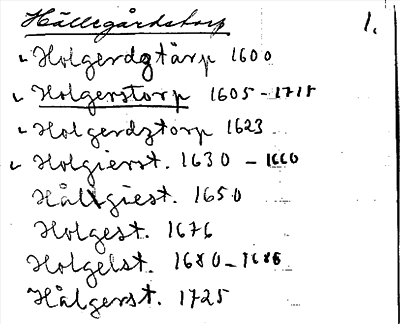 Hällegårdstorp 1.
Holgerdztårp 1600
Holgerstorp 1605-1718
Holgerdztorp 1623
Holgierst. 1630 - 1660
Hållgiest. 1650
Holgest. 1676
Holgelst. 1680-1686
Hålgerst. 1725